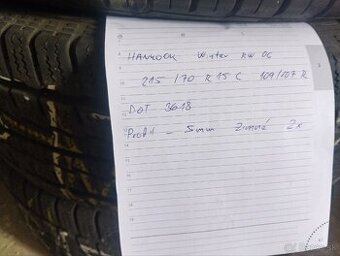 HANKOOK Winter RW 06
215 /70 R 15 C 109/107 R
DOT 3618
Profil - 5mm Zimné 2x